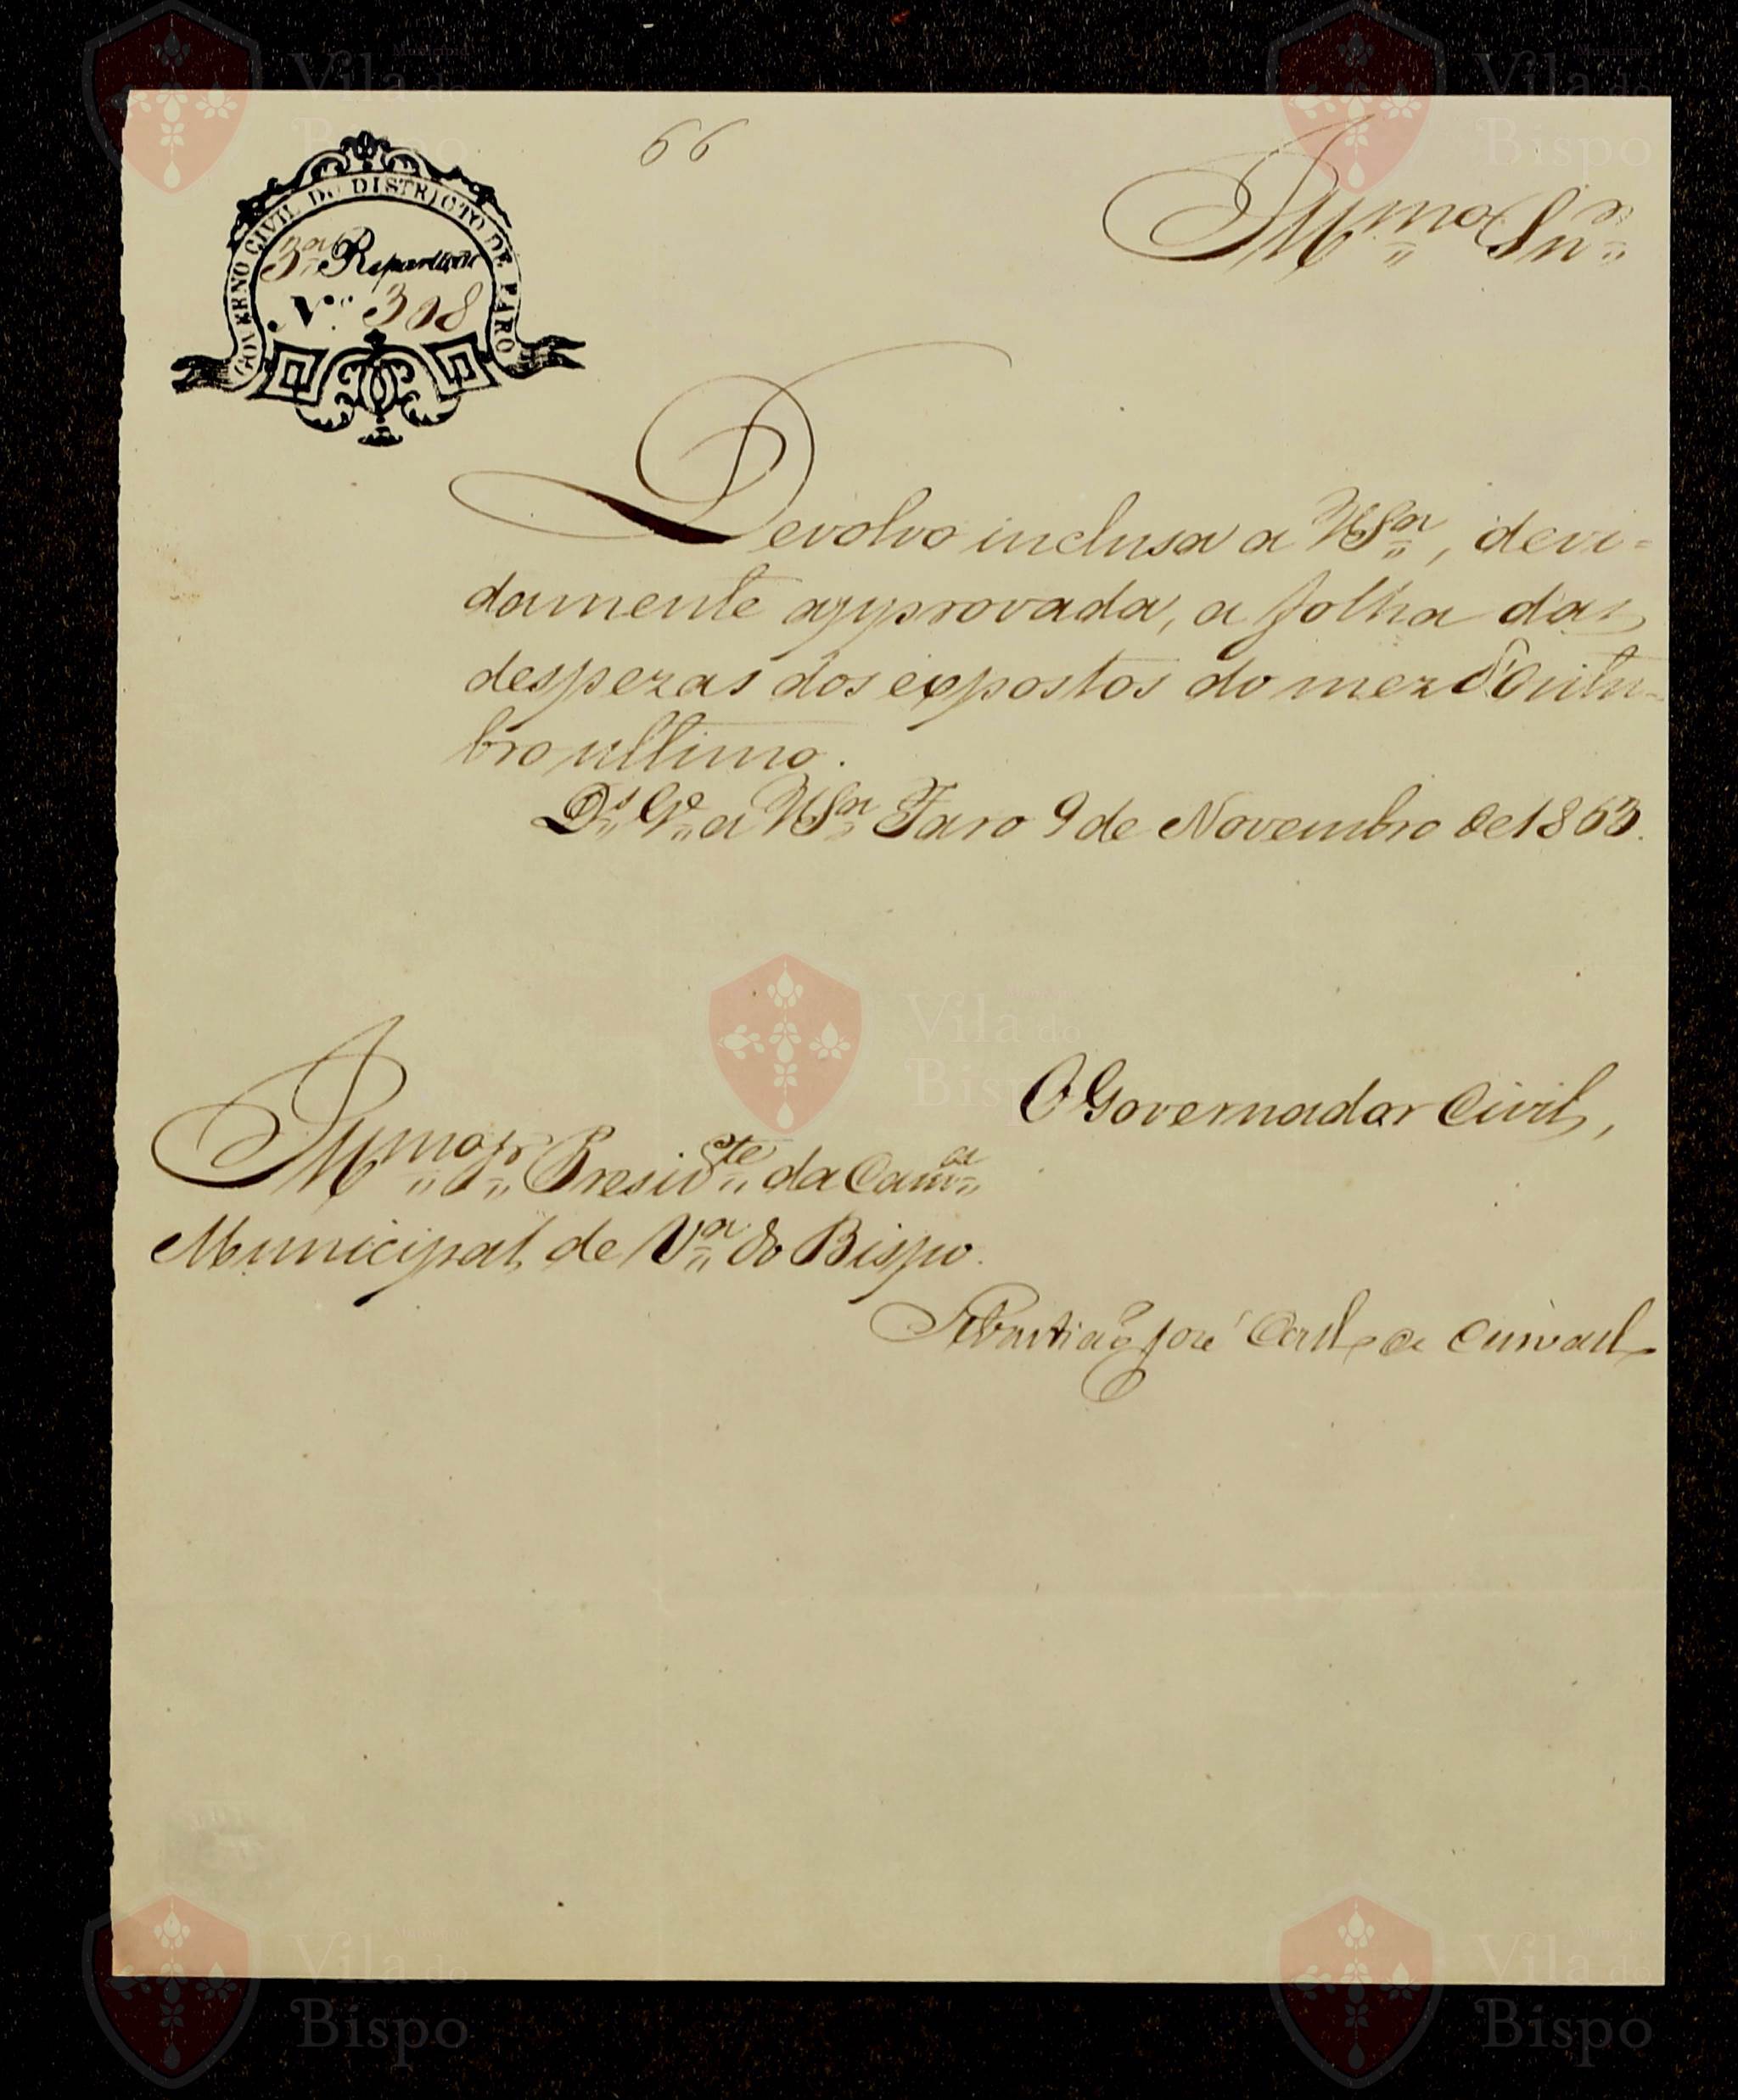 66
GOVERNO CIVIL DO DISTRICTO DE FARO
3.ª Repartição
N.º 308
Illmo Snr
Devolvo inclusa a VSª, devi=
damente approvada, a folha das
despezas dos expostos do mez d'Outu-
bro ultimo.
Ds Ge a VSª Faro 9 de Novembro de 1863.
O Governador Civil,
Illmo Sr Presidte da Camª
Municipal de Vª do Bispo.
Sebastião José
Município
Vila do
Bispo